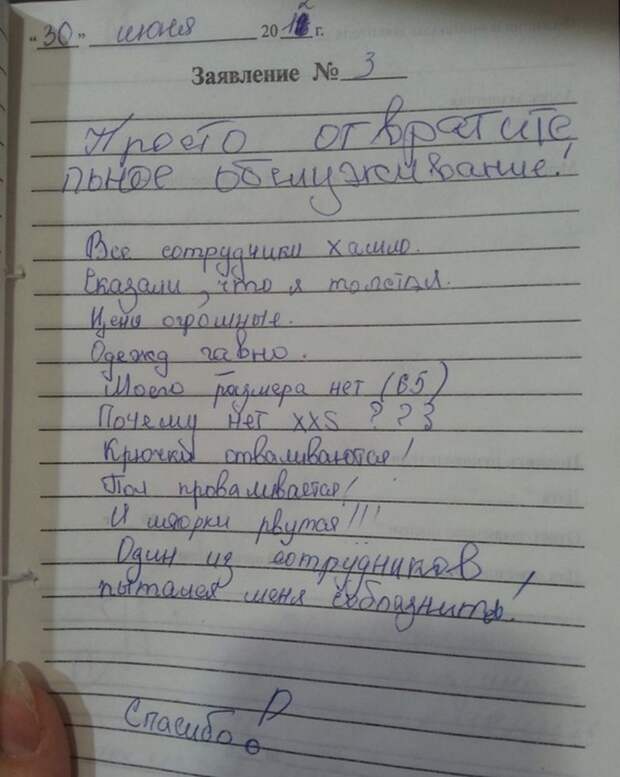 "30" июня 2012 г.
Заявление № 3
Просто отвратите
льное обслуживание!
Все сотрудники хамло.
Сказали, что я толстая.
Цены огромные.
Одежд гавно.
Моего размера нет (65)
Почему нет XXS ???
Крючки отваливаются!
Пол проваливается!
И шторки рвутся!!!
Один из сотрудников,
пытался меня соблазнить!
Спасибо